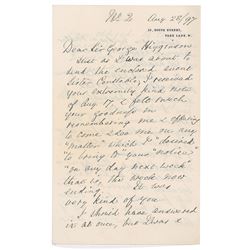 No 2 Aug 28/97
10, SOUTH STREET,
PARK LANE, W.
Dear Sir George Higginson
Just as I was about to
send the enclosed about
Sister Constable, I received
your extremely kind note
of Aug 17, & felt much
your goodness in
remembering me & offering
to come & see me on any
"matter" which I "desired
to bring to your "notice"
"on any day next week"
that is, the week now
ending. It was
very kind of you
I should have answered
it at once, but I was